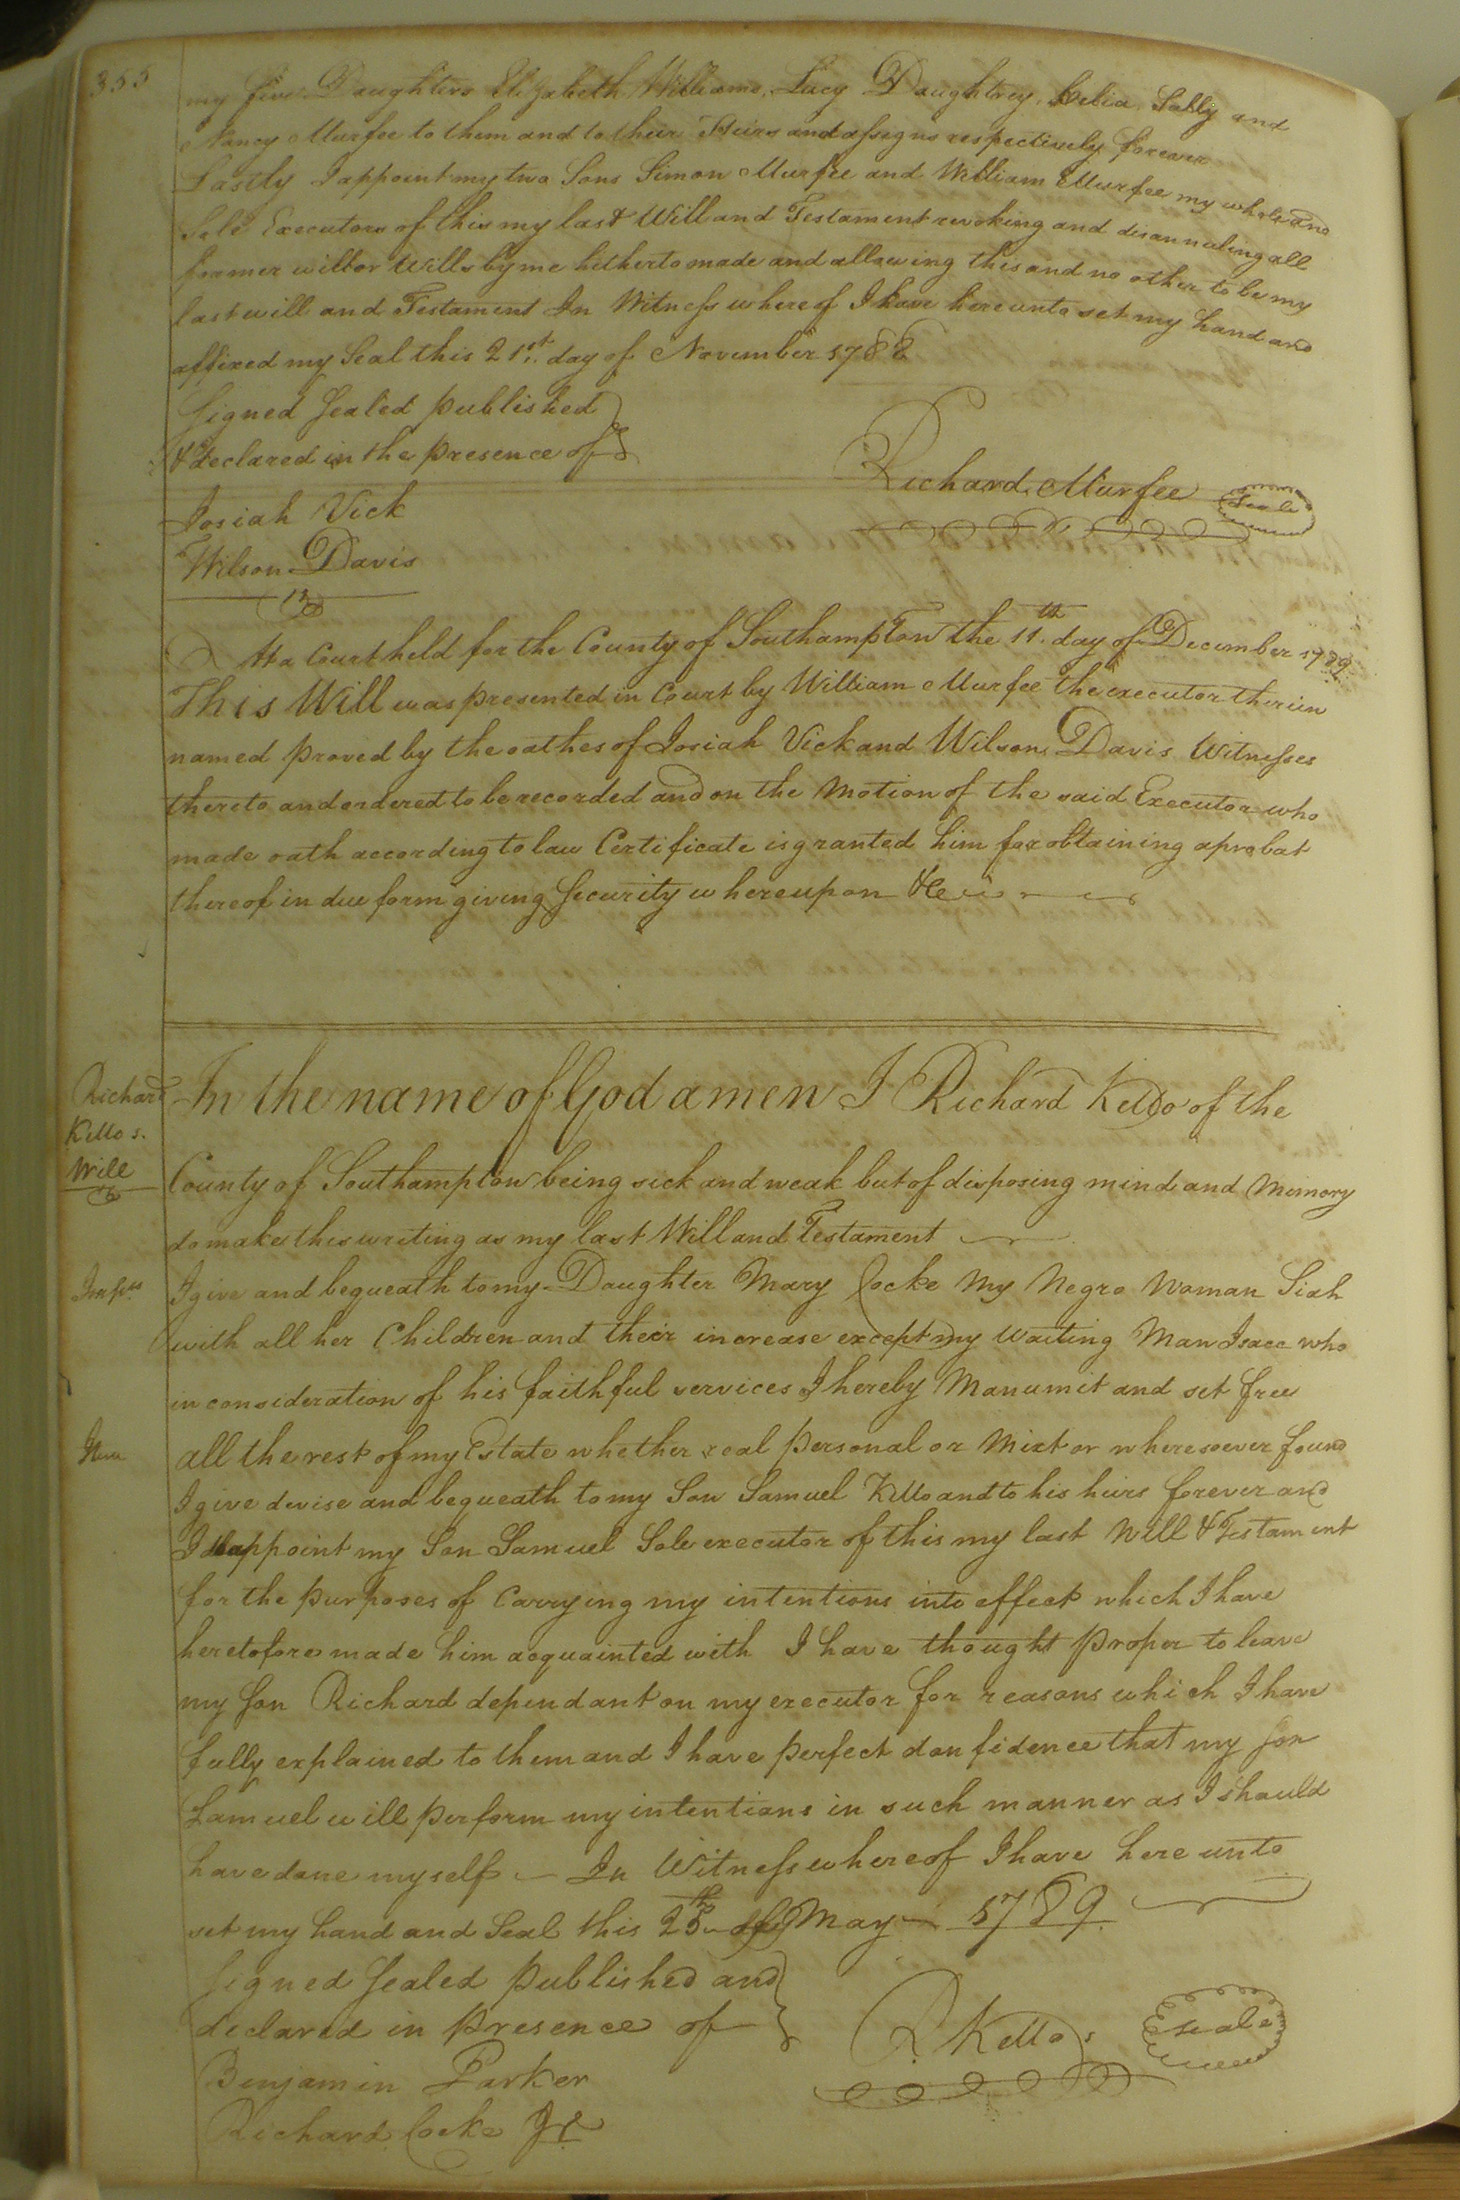 355
my five Daughters Elizabeth Williams, Lucy Daughtrey, Celia, Sally and
Nancy Murfee to them and to their Heirs and assigns respectively forever
Lastly I appoint my two Sons Simon Murfee and William Murfee my whole and
Sole Executors of this my last Will and Testament revoking and disannuling all
former will or Wills by me hitherto made and allowing this and no other to be my
last will and Testament In Witness whereof I have hereunto set my hand and
affixed my Seal this 21st. day of November 1788
Signed Sealed published
& declared in the presence of
Richard Murfee Seale
Josiah Vick
Wilson Davis
At a Court held for the County of Southampton the 11th. day of December 1789
This Will was presented in Court by William Murfee the executor therein
named proved by the oathes of Josiah Vick and Wilson Davis Witnesses
thereto and ordered to be recorded and on the Motion of the said Executor who
made oath according to law Certificate is granted him for obtaining a probat
thereof in due form giving Security whereupon &c
Richard
Kello s.
Will
In the name of God amen I Richard Kello of the
County of Southampton being sick and weak but of disposing mind and Memory
do make this writing as my last Will and Testament
I give and bequeath to my Daughter Mary Cocke My Negro Woman Siah
with all her Children and their increase except my Waiting Man Isacc who
in consideration of his faithful services I hereby Manumit and set free
Item
all the rest of my Estate whether real personal or Mixt or wheresoever found
I give devise and bequeath to my Son Samuel Kello and to his heirs forever and
I appoint my Son Samuel Sole executor of this my last Will & Testament
for the purposes of Carrying my intentions into effect which I have
heretofore made him acquainted with I have thought proper to leave
my Son Richard dependant on my executor for reasons which I have
fully explained to them and I have perfect confidence that my Son
Samuel will perform my intentions in such manner as I should
have done myself In Witness whereof I have here unto
set my hand and Seal this 25th of May 1789.
Signed Sealed Published and
declared in presence of
R. Kello Seale
Benjamin Parker
Richard Cocke Jr